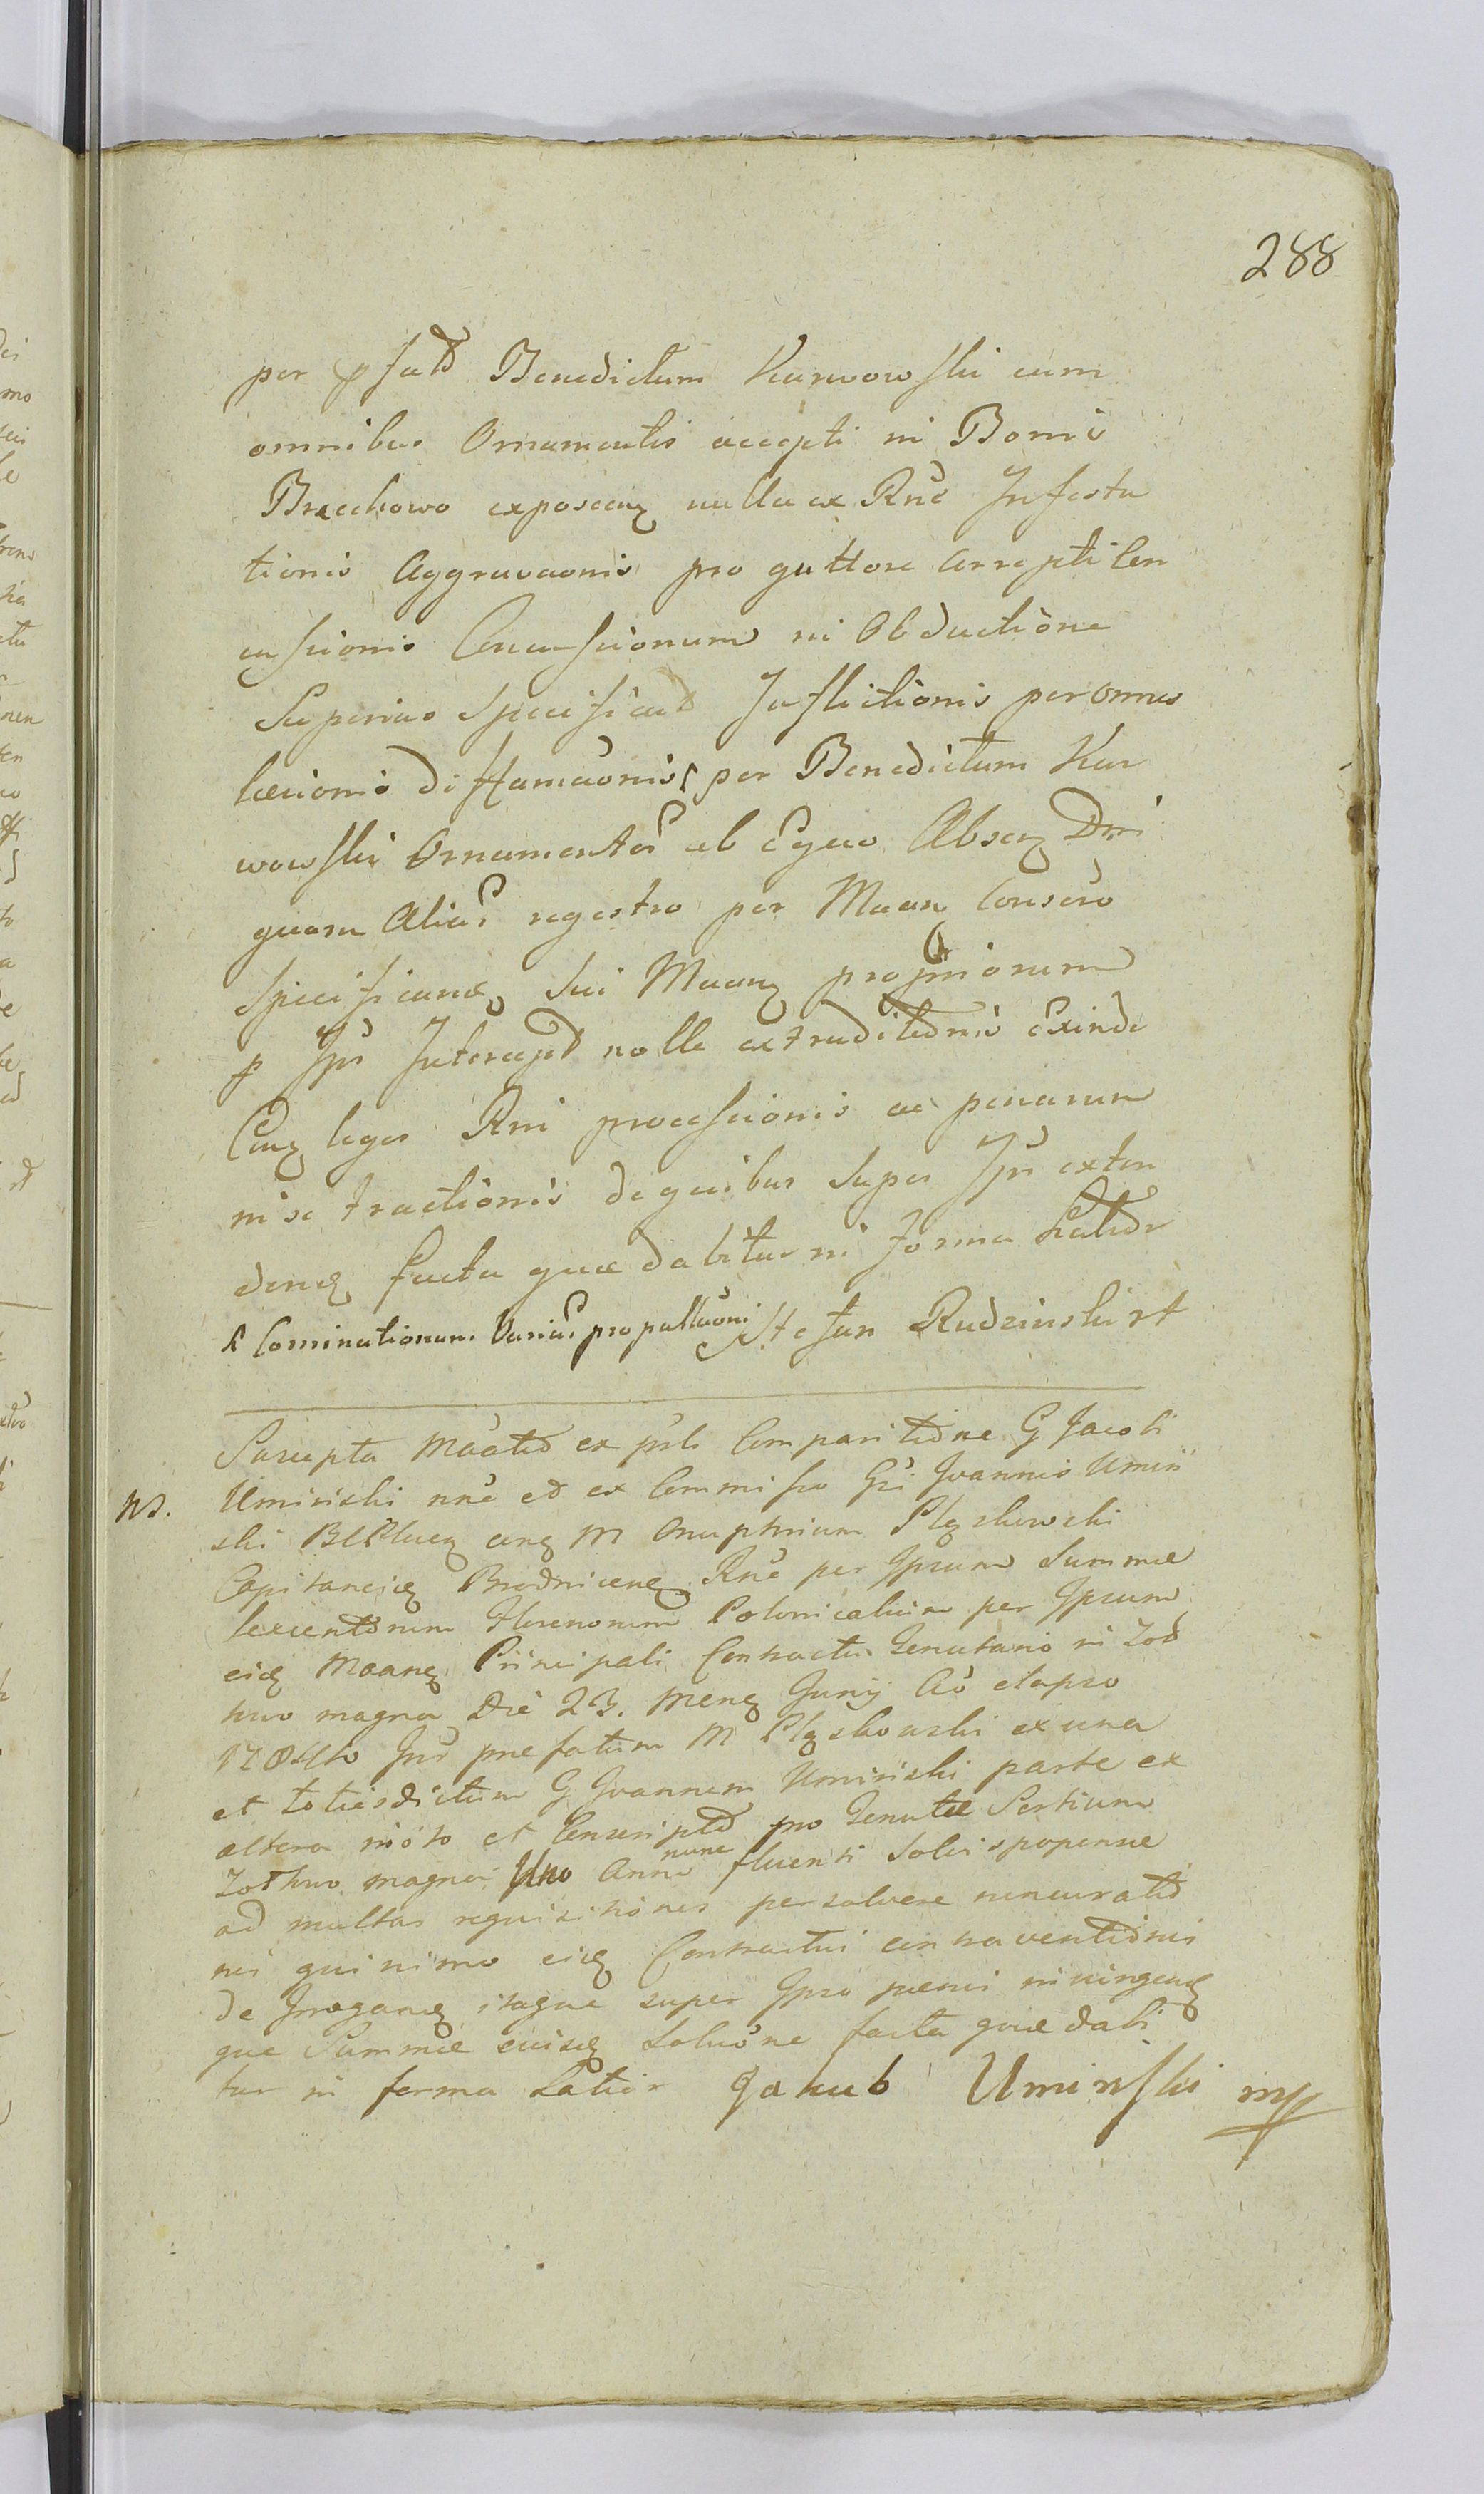 288
per pfatd Benedictum Karwowski cum
omnibus Ornamentis accepti in Bonis
Brzechowo exposcenq nulla ex Rne Infesta
tionis Aggravaonis pro guttore arrepti Con
cussionis Concussionum in Obductione
Superius Specificatd Inflictionis per omnes
læsionis diffamaonis per Benedictum Kar
wowski Ornamentor ab Equo Absenq Dni
quam Aliar regestro per Maanq Conscro
Specificanq sui Maanq propriorum
p Ips Intercept nolle extraditionis Exinde
Conq leges Rni processionis ac penarum
in se tractionis de quibus Super Ips exten
denq facta quæ dabitur in Forma Latior
Cominationum Variar propallaoni Stefan Rudzinski rt
Suscepta Maatio ex psli Comparitione G Jacobi
Ns. Uminski nne et ex Commisso Gsi Joannis Umin
ski cnq M Onuphrium Pląskowski
Capitaneicz Brodnicenq Rne per Ipsum Summæ
sexcentorum Florenorum Polonicalium per Ipsum
eidq Maanq Principali Contractu Tenutario in Zod
huo magna Die 23. Menq Junij Ao elapso
1784to Inr prefatum M Pląskowski ex una
et totiesdictum G Joannem Uminski parte ex
altera inito et Conscripto pro Tenuta Sortium
Zothuo magna Uno Anno nunc fluenti Solvi spopensæ
ad multas requisitiones persolvere noncuratio
nis quinimo eidq Contractui contraventionis
de Irroganq itaque super Ipso pænis in vingenq
que Summæ eiusq Solutione facta quæ dabi
tur in forma Latior Jakub Uminski mp